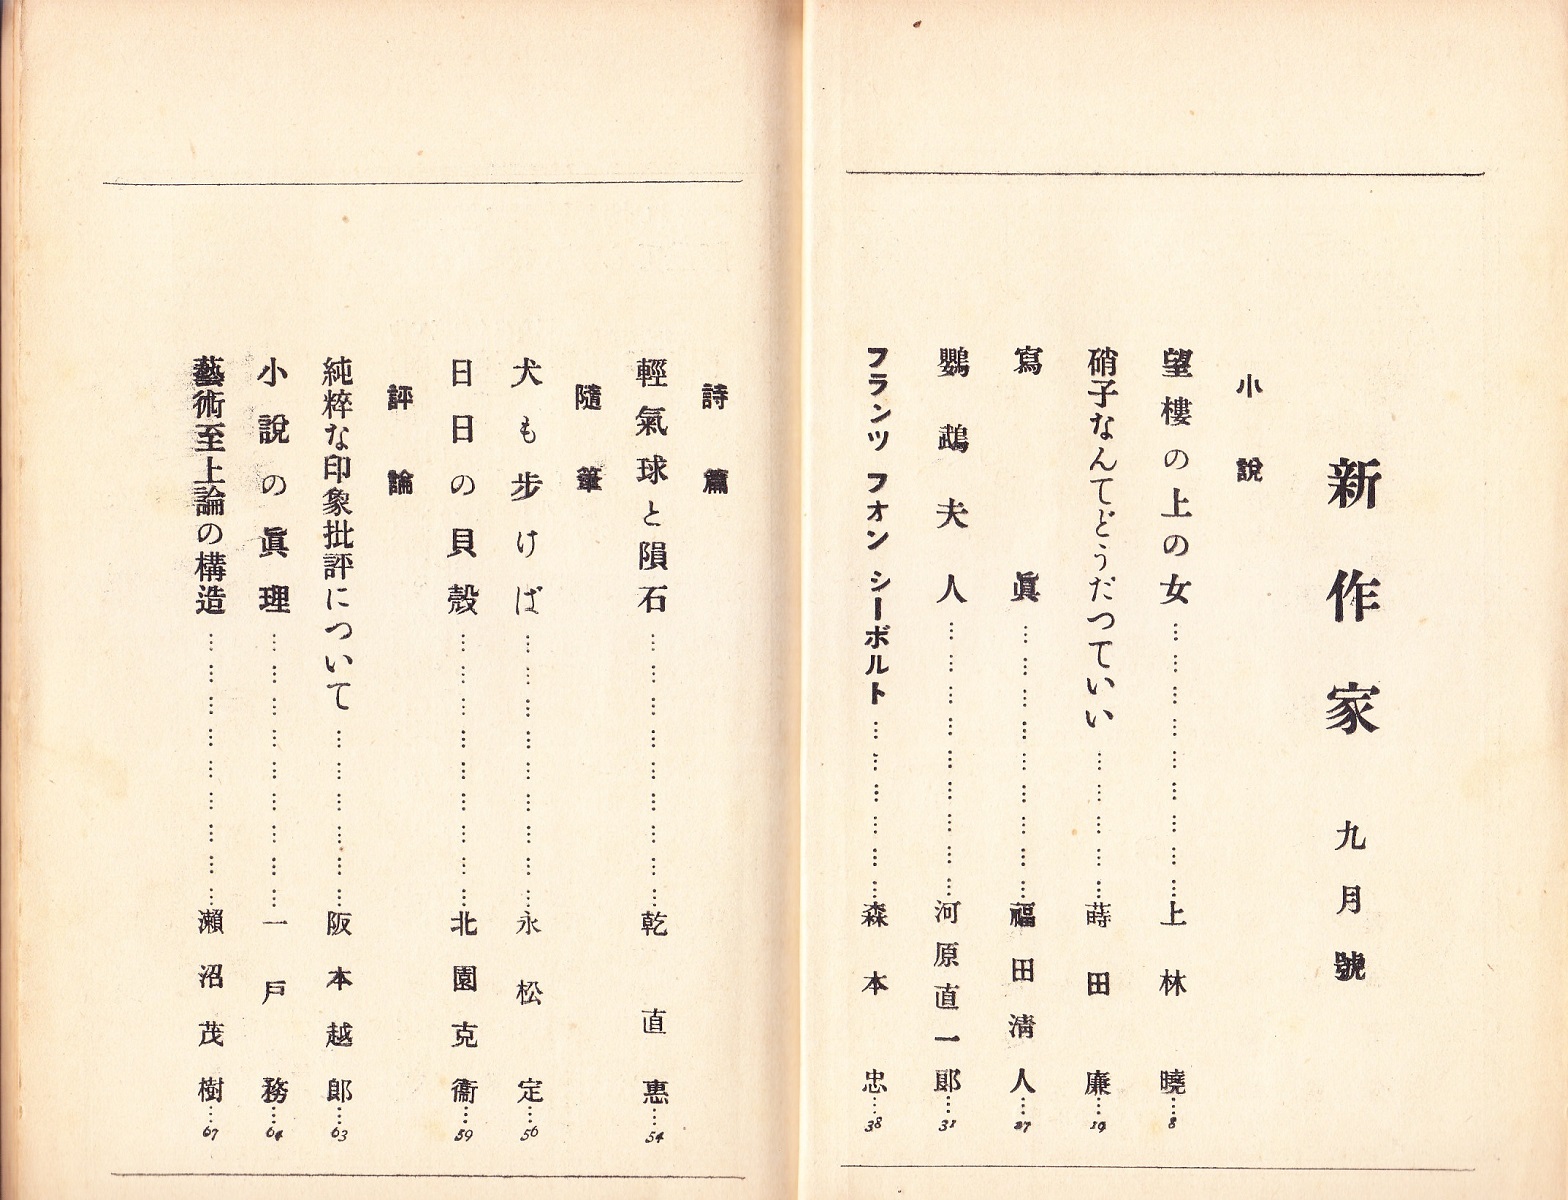 新作家 九月號
小說
望樓の上の女……………………上林曉…8
硝子なんてどうだつていい……………蒔田廉…19
寫眞……………………福田淸人…27
鸚鵡夫人……………………河原直一郞…31
フランツ フォン シーボルト………………森本忠…38
詩篇
輕氣球と隕石……………………乾直惠…54
隨筆
犬も步けば……………………永松定…56
日日の貝殼……………………北園克衞…59
評論
純粹な印象批評について………………阪本越郞…63
小說の眞理……………………一戶務…64
藝術至上論の構造……………………瀨沼茂樹…67